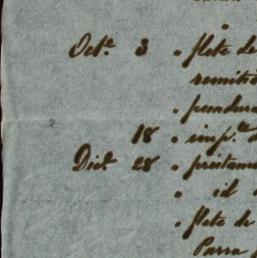 "
Octe. 3 " flete de
remitid
" pendura
18 " impte. d
Dice. 28 " préstamo
" id
" flete de
Parra